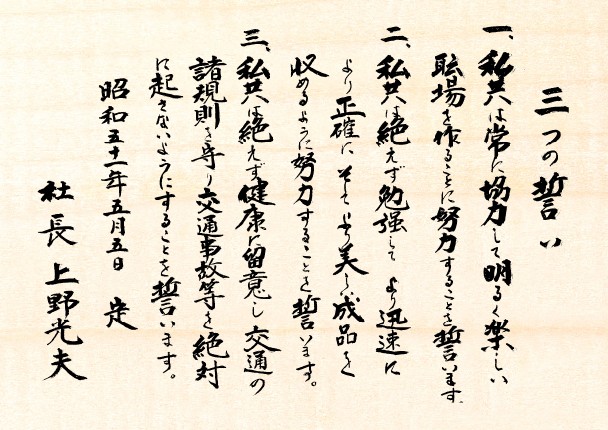 三つの誓い
一、私共は常に協力して明るく楽しい
職場を作ることに努力することを誓います
二、私共は絶えず勉強して より迅速に
より正確に そして より美しい成品を
収めるように努力することを誓います。
三、私共は絶えず健康に留意し 交通の
諸規則を守り交通事故等を絶対
に起さないようにすることを誓います。
昭和五十一年五月五日 定
社長 上野光夫